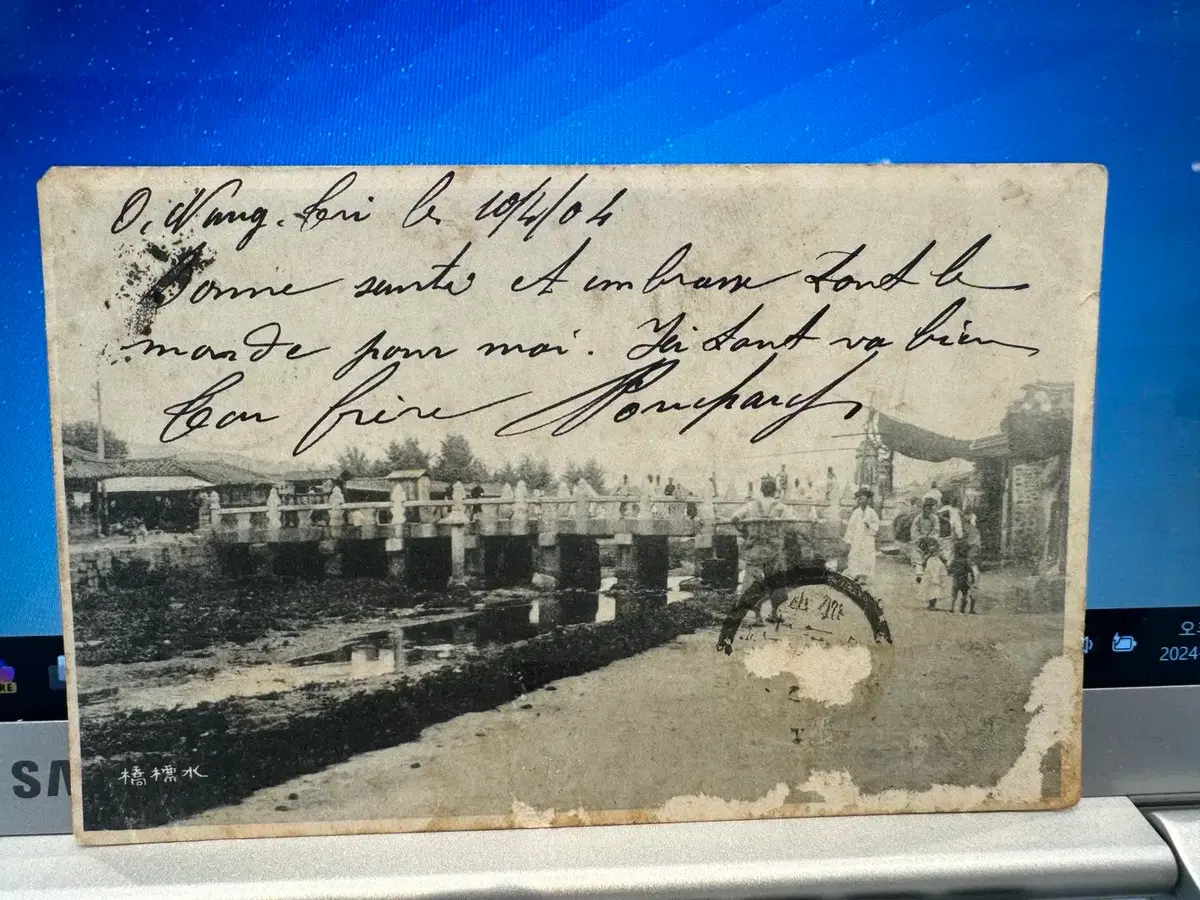 O, Wang. tri le 10/4/04
Bonne santé et embrasse tout le
monde pour moi. Ici tout va bien
Ton frère
橋標水
SAM
오
2024
RE